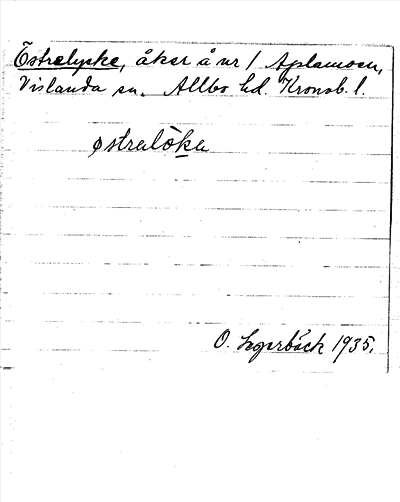 Östralycke, åker å nr 1 Aplamoen,
Vislanda sn. Allbo hd. Kronob. l.
østralöka
O. Lagerbäck 1935.